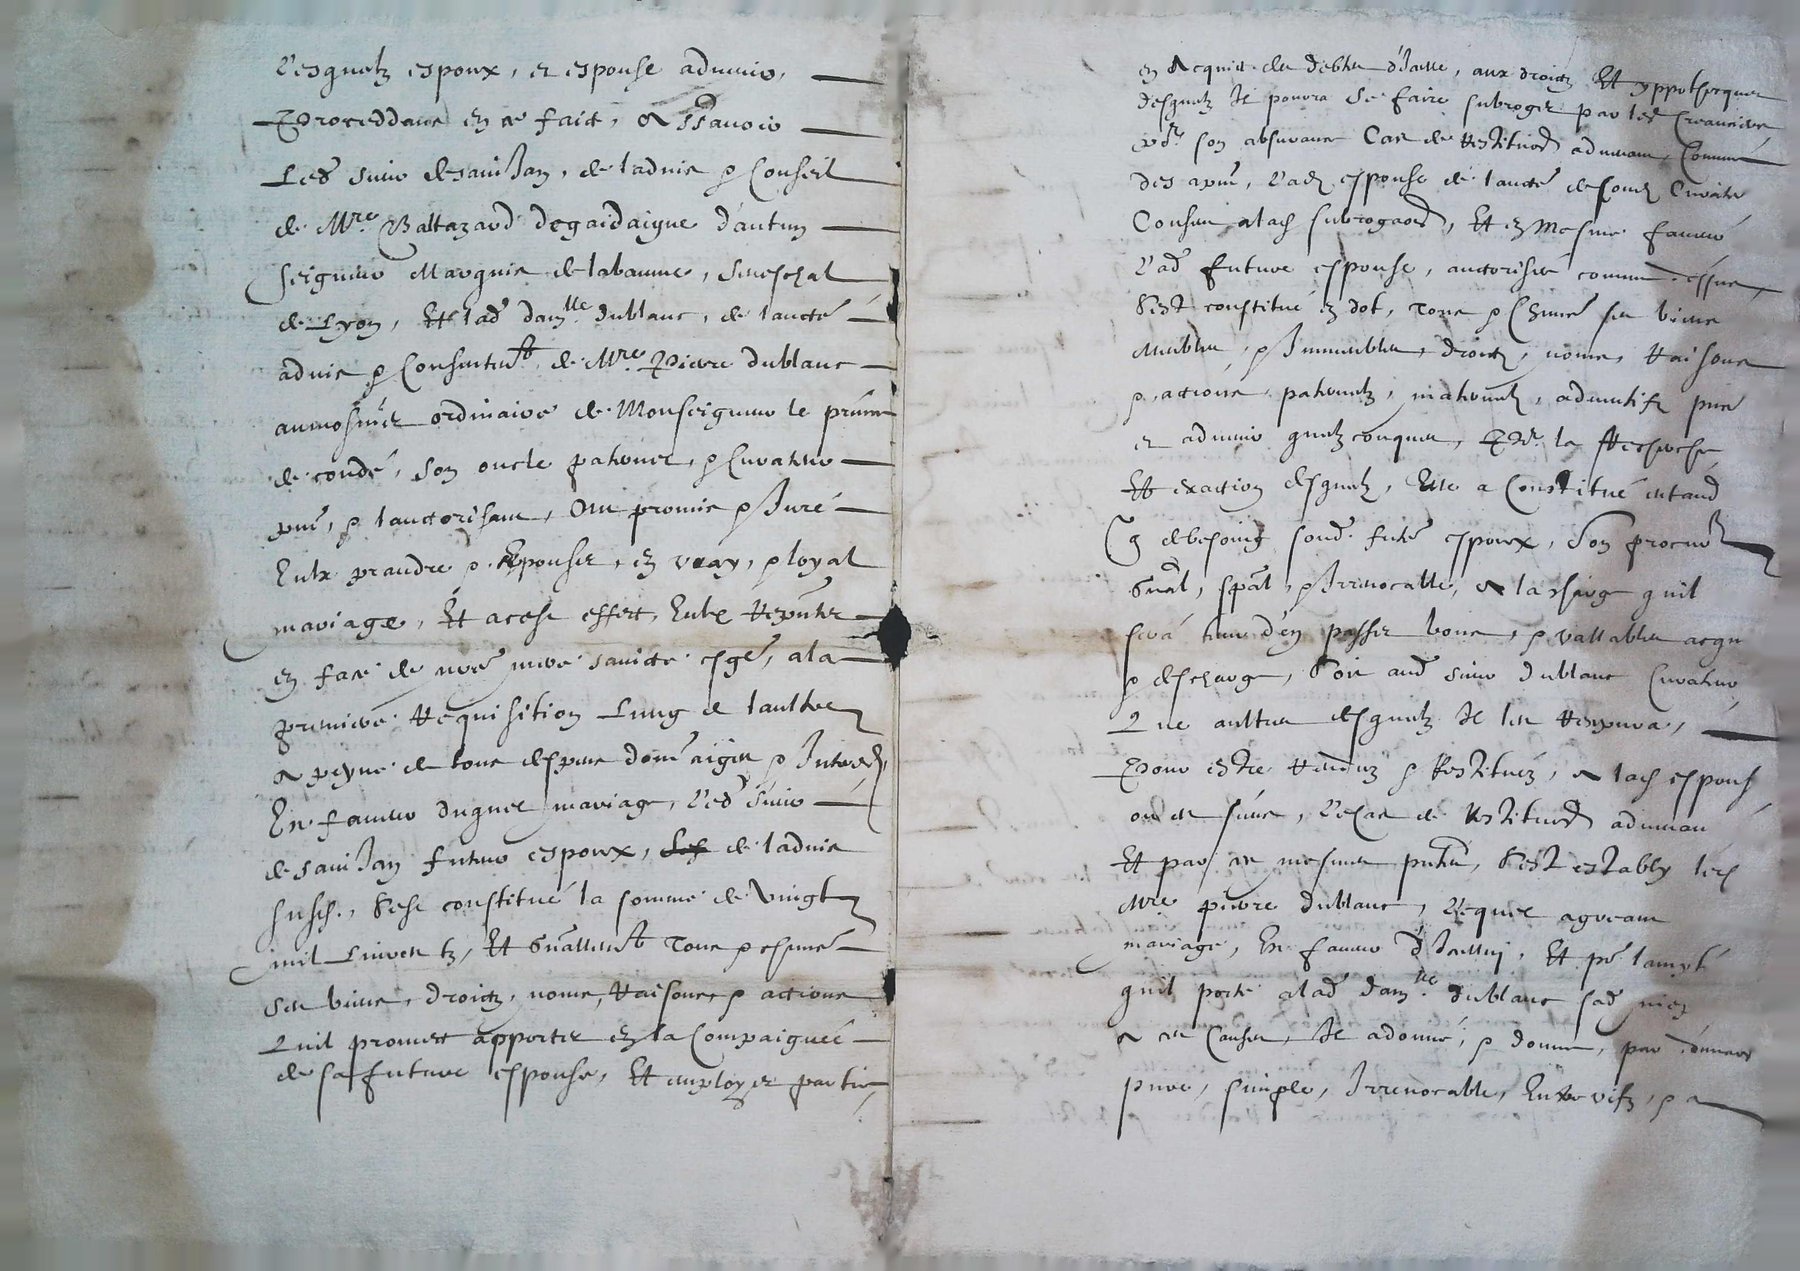 Lesquelz espoux, et espouse advenir,
Proceddant en ce faict, A Sçavoir
Led sieur de sainct Jan, de ladvis & Conseil
de Mre Baltazard degaidaigne d'autun
seigneur Marquis de labaume, seneschal
de Lyon, Et lad damlle dublanc, de laucté
advis & Consentemt de Mre Pierre dublanc
aumosnier ordinaire de Monseigneur le prince
de condé, son oncle paternel, & Curateur
pnt, & lauctorisant, Ont promis & Juré
Entre prandre & Epouser, en vray, & loyal
mariage, Et a cest effect, Entre
en face de nre mere saincte esglé, a la
premiere Requisition Lung de laultre
A peyne de tous despens domaiges & Intretz
En faveur duquel mariage, Led sieur
de sainct Jan futur espoux, de ladvis
susd, Sest constitué la somme de vingt
mil Livres tz, Et gnallemt Tous & chuns
ses biens, droictz, noms, Raisons, & actions
Quil promect apporter en la Compaignée
de sa future espouse, Et employer partie
En Acquit des debtes d'Icelle, aux droictz Et yppothecques
desquelz Il pourra Se faire subroger par les Creanciers
pr son assurance Cas de Restituon advenant, Comme
des apnt, Lad espouse de laucté desond Curateur
Consent a lad subrogaon, Et en Mesme faveur
Lad future espouse, auctorisée comme dessus,
Sest constitué en dot, Tous & Chuns ses biens
Meubles, & Immeubles, droictz, noms, Raisons
& actions, paternelz, maternelz, adventifz pnts
et advenir quelzconques, Pr la Recherche
Et exaction desquelz, Elle a Constitué entand
q de besoing sond futr espoux, Son procur
Gnal, spal, & Irrevocable, A la charge quil
sera tenu d'en passer bons, & vallables acqu
& descharge, Soit aud sieur dublanc Curateur
Que aultres desquelz Il les Recepvra,
Pour estre Rendus & Restitués, A lad espouse
ou es siens, Le cas de Restituon advenan
Et par ces mesmes pntes, Sest estably led
Mre pierre dublanc, Lequel agreant
mariage, En faveur d'Icelluy, Et pr lamytié
quil porte a lad damlle dublanc sad niepce
A ces Causes, Il a donné, & donne, par donaon
pure, simple, Irrevocable, Entre vifz, & a